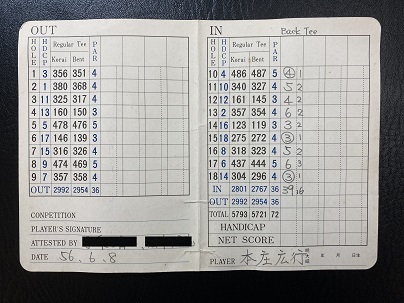 OUT
HOLE HDCP Regular Tee PAR
Korai Bent
1 3 356 351 4
2 1 380 368 4
3 11 325 317 4
4 13 160 150 3
5 5 478 476 5
6 17 146 139 3
7 15 316 326 4
8 9 474 469 5
9 7 357 358 4
OUT 2992 2954 36
COMPETITION
PLAYER'S SIGNATURE
ATTESTED BY
DATE 56.6.8
IN Back Tee
HOLE HDCP Regular Tee PAR
Korai Bent
10 4 486 487 5 4 1
11 10 340 327 4 5 2
12 12 161 145 3 4 2
13 2 357 354 4 6 2
14 16 123 119 3 3 2
15 18 275 272 4 3 1
16 8 318 323 4 5 2
17 6 437 444 5 6 3
18 14 304 296 4 3 1
IN 2801 2767 36 39 16
OUT 2992 2954 36
TOTAL 5793 5721 72
HANDICAP
NET SCORE
PLAYER 本庄広行 年 月 日生